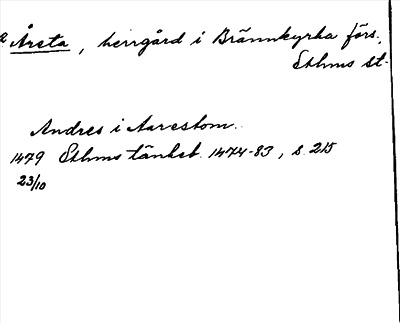 Årsta, herrgård i Brännkyrka förs.,
Sthms st.
Andres i Aarestom.
1479 Sthms tänkeb. 1474-83, s. 215
23/10